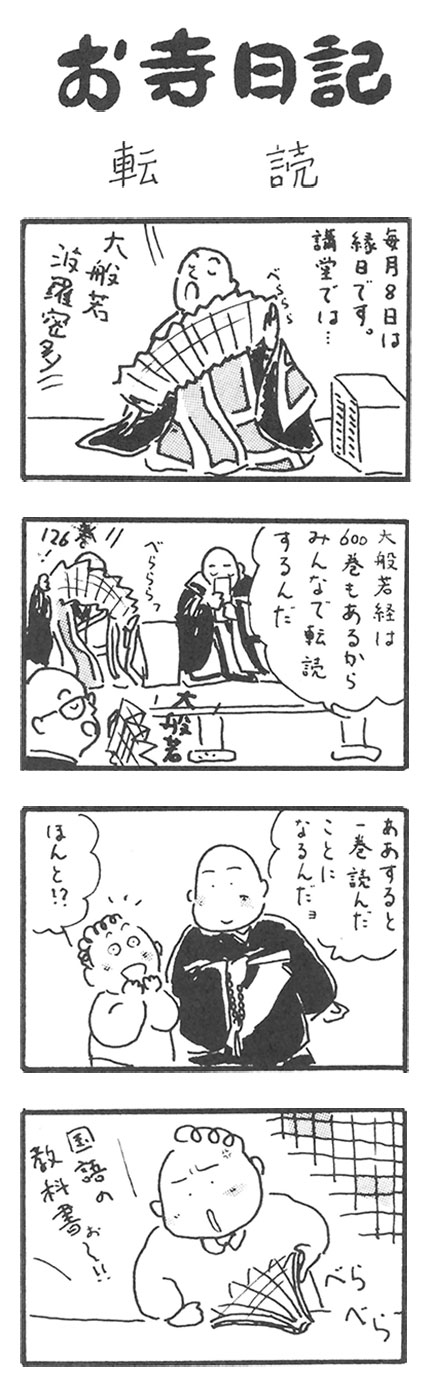 お寺日記
転読
毎月8日は
縁日です。
講堂では…
べららら
大般若
波羅密多〃
大般若経は
600巻もあるから
みんなで転読
するんだ
べらららっ
126巻〃
大般若
ああすると
一巻読んだ
ことに
なるんだョ
ほんと!?
べら
べら
国語の
教科書ぉ〜!!